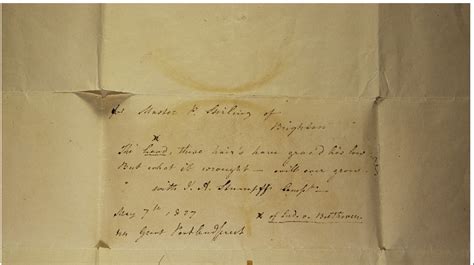 for Master P. Stirling of
Brighton
x
The head, these hair's have grac'd his low
But what it wrought – will ever grow
with J. A. Stumpff's Compts
May 7th 1827
44 Great Portland street
x of Ludw. v. Beethoven